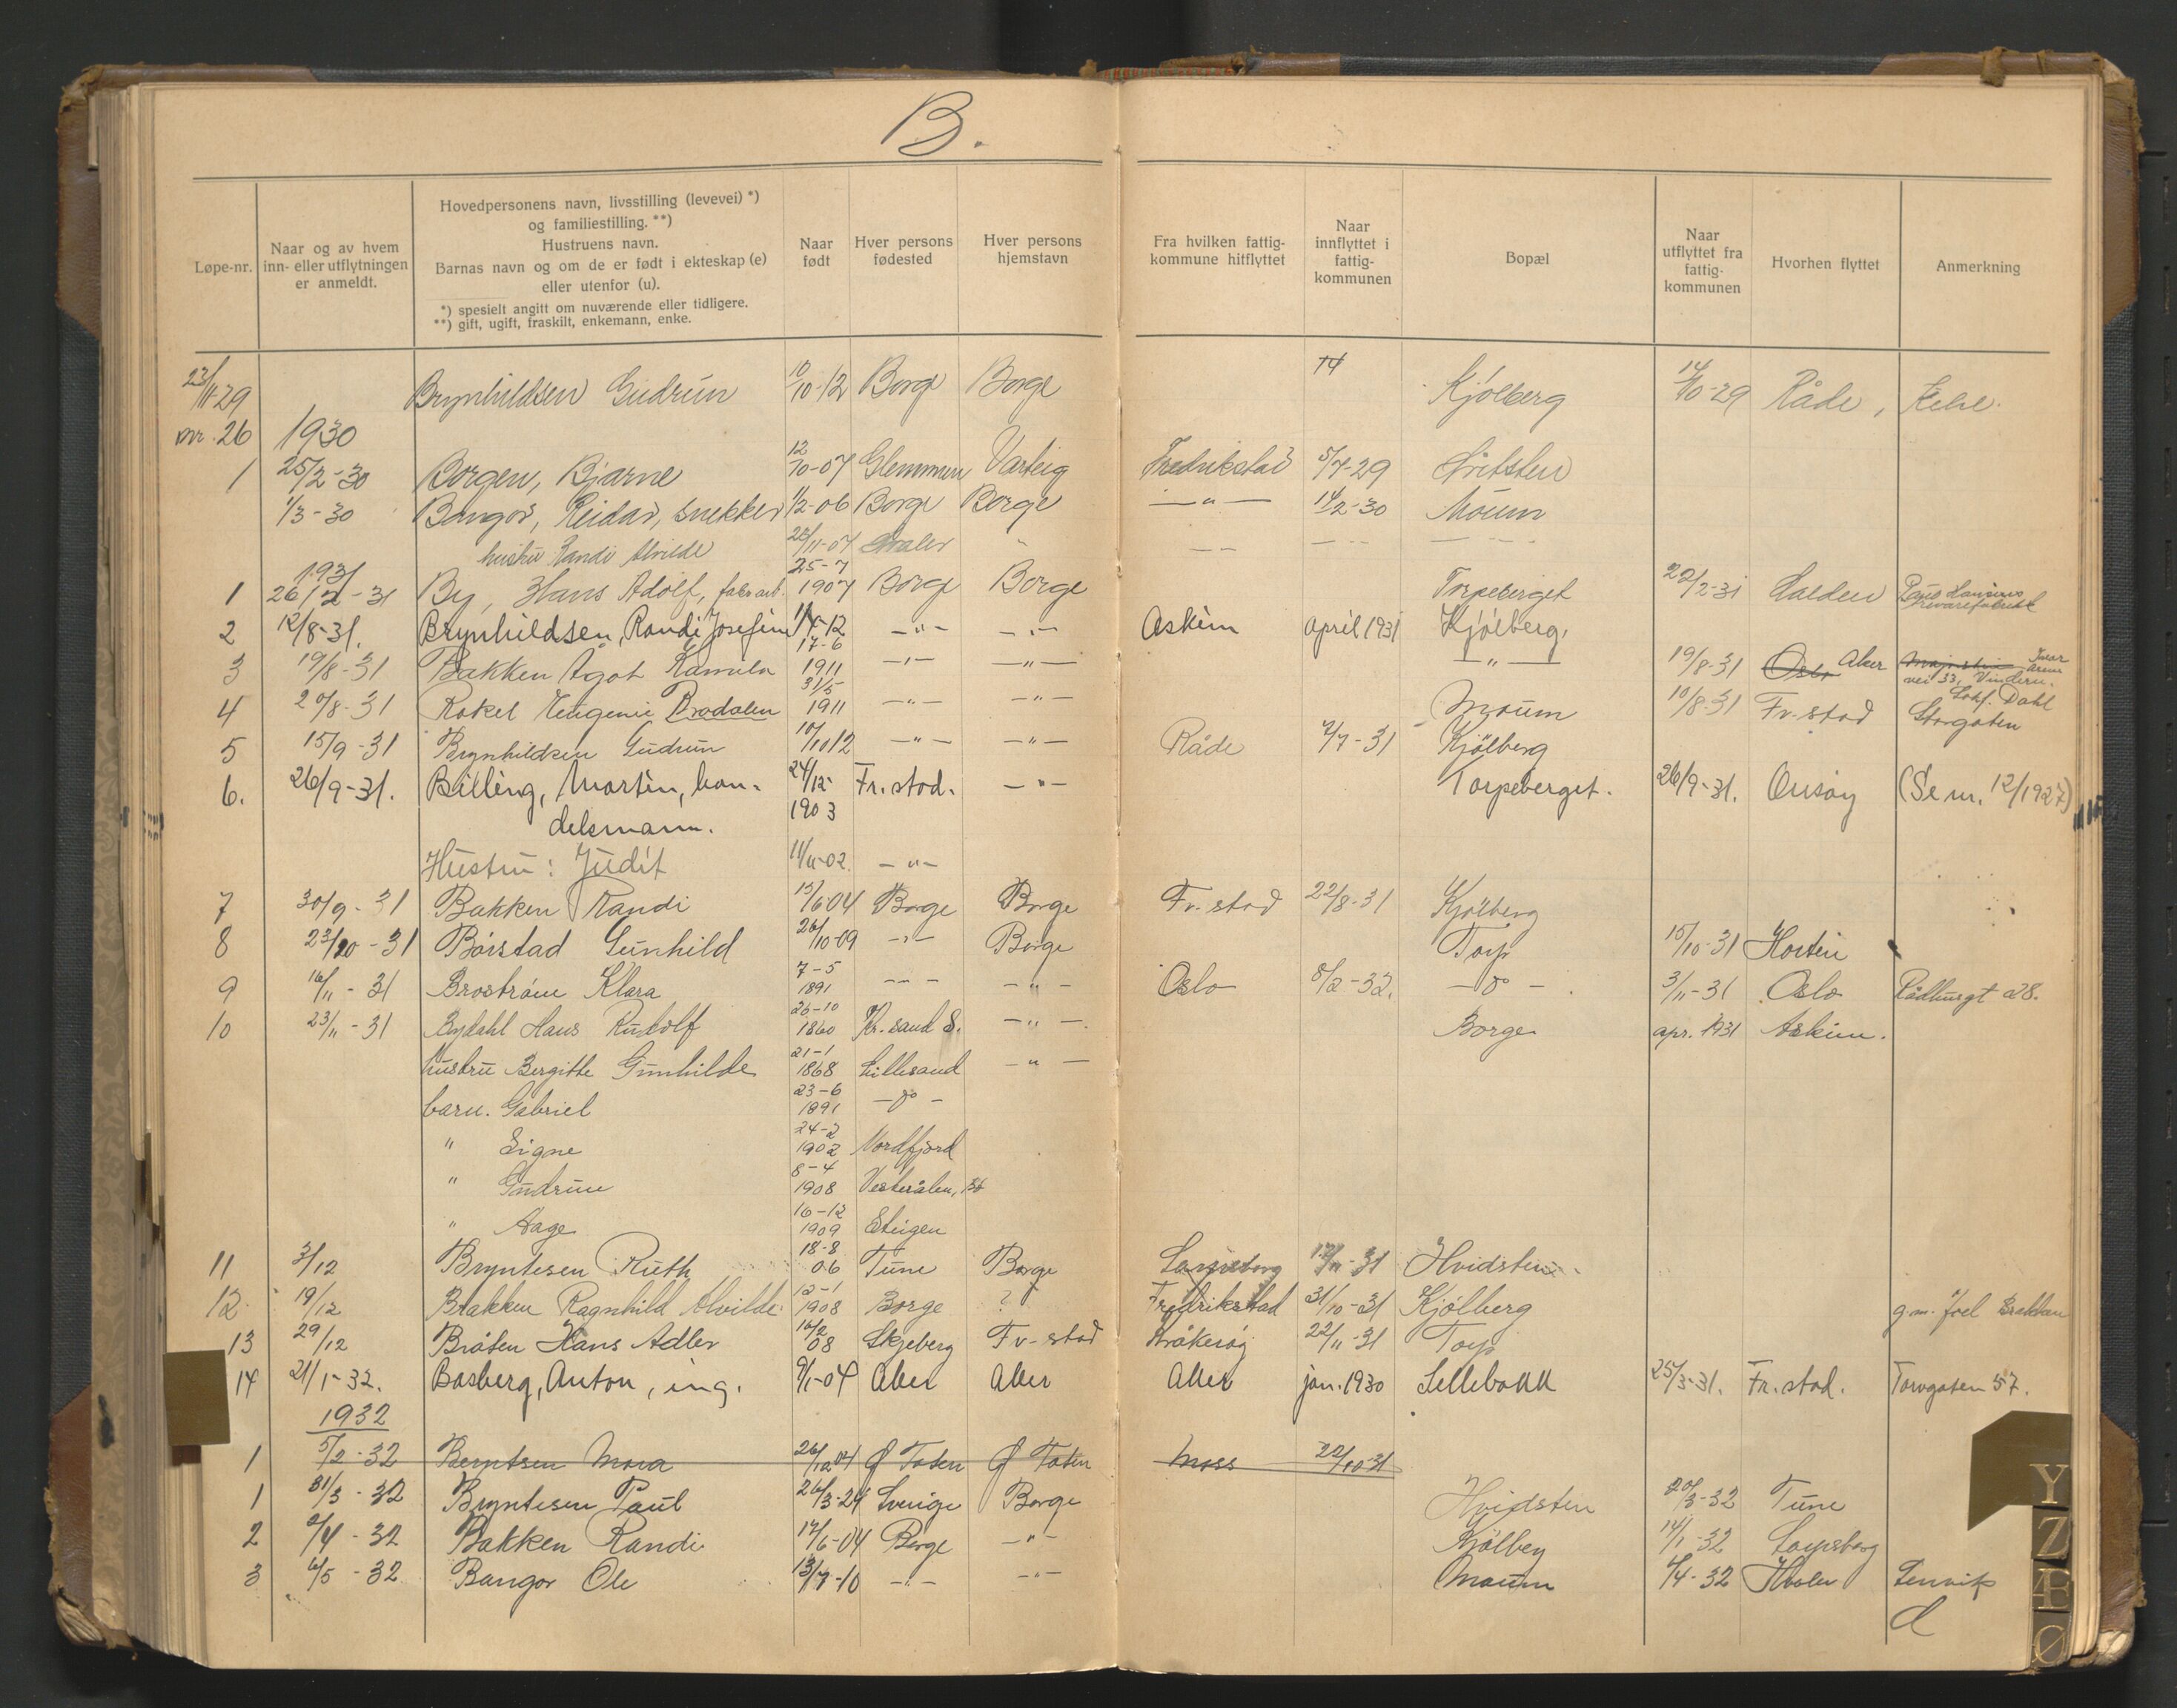 B.
Løpe-nr.
Naar og av hvem
inn- eller utflytningen
er anmeldt.
Hovedpersonens navn, livsstilling (levevei) *)
og familiestilling. **)
Hustruens navn.
Barnas navn og om de er født i ekteskap (e)
eller utenfor (u).
*) spesielt angitt om nuværende eller tidligere.
**) gift, ugift, fraskilt, enkemann, enke.
Naar
født
Hver persons
fødested
Hver persons
hjemstavn
Fra hvilken fattig-
kommune hitflyttet
Naar
innflyttet i
fattig-
kommunen
Bopæl
Naar
utflyttet fra
fattig-
kommunen
Hvorhen flyttet
Anmerkning
23/11-29 Brynhildsen Gudrun 10/10-12 Borge Borge 14 Kjølberg 14/10-29 Råde,
nr. 26 1930
1 25/2-30 Borgen, Bjarne 12/10-07 Glemmen Varteig Fredrikstad 5/7-29
1/3-30 Bangor, Reidar, snekker 1/2-06 Borge Borge —"— 14/2-30 Moum
hustru Randi Alvilde 22/11-07 "
1931
1 26/2-31 By, Hans Adolf, fabr.arb. 25-7 1907 Borge Borge Torpeberget 22/2-31 Halden
2 12/8-31. Brynhildsen, Randi Josefine 1/4-12 —"— —"— Askim april 1931 Kjølberg.
3 19/8-31 Bakken Ågot Kamilla 17-6 1911 —"— —"— —"— 19/8-31 Oslo Aker vei 33, Vindern.
4 20/8-31 Rakel Eugenie Bradalen 31/5 1911 —"— —"— Moum 10/8-31 Fr.stad Dahl
Storgaten
5 15/9-31 Brynhildsen Gudrun 10/10 12 —"— —"— Råde 7/7-31 Kjølberg
6. 26/9-31. Billing, Martin, han- 24/12 1903 Fr.stad. —"— Torpeberget. 26/9-31. Onsøy (Se nr. 12/1927)
delsmann.
Hustru: Judit 11/11-02. —"—
7 30/9-31 Bakken Randi 15/6 04 Borge Borge Fr.stad 22/8-31 Kjølberg
8 23/10-31 Børstad Gunhild 26/10-09 —"— Borge Torp 15/10-31 Horten
9 16/11-31 Broström Klara 7-5 1891 —"— —"— Oslo 8/2-32. —o— 3/11-31 Oslo Rådhusgt 28.
10 23/11-31 Bydahl Hans Rudolf 26-10 1860 Kr.sand S. —"— Borge apr. 1931 Askim.
hustru Bergitte Gunhilde 21-1 1868 Lillesand —"—
barn. Gabriel 23-6 1891 —o—
" Signe 24-2 1902 Nordfjord
" Gudrun 8-4 1908 Vesterålen,
" Aage 16-12 1909 Steigen
11 3/12 Bryntesen Ruth 18-8 06 Tune Borge Sarpsborg 12/11-31 Hvidsten
12 19/12 Brakken Ragnhild Alvilde 12-1 1908 Borge ? Fredrikstad 31/10-31 Kjølberg g.m. Joel Brakken
13 29/12 Bråten Hans Adler 16/2 08 Skjeberg Fr-stad Kråkerøy 22/11-31 Torp
14 21/1-32. Basberg, Anton, ing. 9/1-04 Aker Aker Aker jan. 1930 Sellebakk 25/3-31. Fr.stad. Torvgaten 57.
1932
1 5/2-32 Berntsen Mora 26/12 04 Ø Toten Ø Toten Moss 22/10-31
1 31/3-32 Bryntesen Paul 26/3-24 Sverige Borge Hvidsten 20/3-32 Tune
2 2/4-32 Bakken Randi 17/6-04 Borge —"— Kjølberg 14/1-32 Sarpsborg
3 6/5-32 Bangor Ole 13/7-10 —"— —"— Moum 4/4-32 Hvaler
Y
Z
Æ
Ø